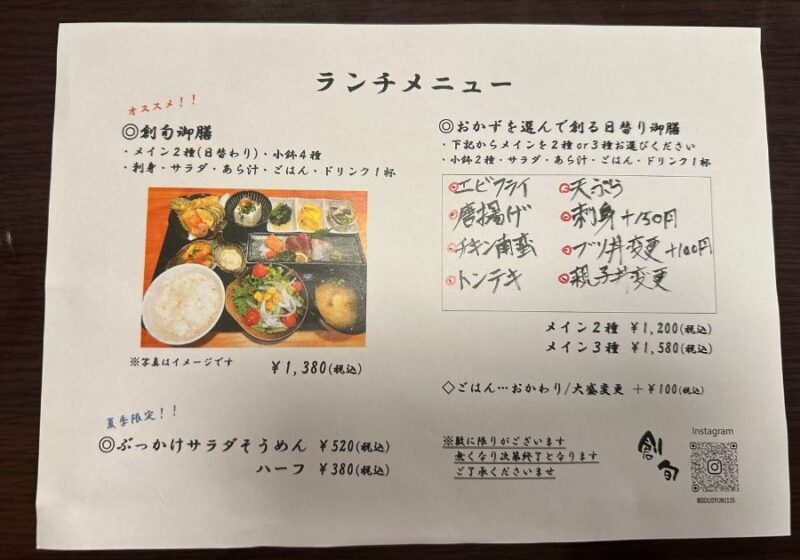 ランチメニュー
オススメ！！
◎創旬御膳
・メイン２種(日替わり)・小鉢４種
・刺身・サラダ・あら汁・ごはん・ドリンク１杯
※写真はイメージです
¥1,380(税込)
夏季限定！！
◎ぶっかけサラダそうめん ¥520(税込)
ハーフ ¥380(税込)
◎おかずを選んで創る日替り御膳
・下記からメインを２種or３種お選びください
・小鉢２種・サラダ・あら汁・ごはん・ドリンク１杯
◎エビフライ ◎天ぷら
◎唐揚げ ◎刺身+150円
◎チキン南蛮 ◎ブツ丼変更+100円
◎トンテキ ◎親子丼変更
メイン２種 ¥1,200(税込)
メイン３種 ¥1,580(税込)
◇ごはん…おかわり/大盛変更 +¥100(税込)
※数に限りがございます
無くなり次第終了となります
ご了承くださいませ
創旬
Instagram
@SOUSYUN1115